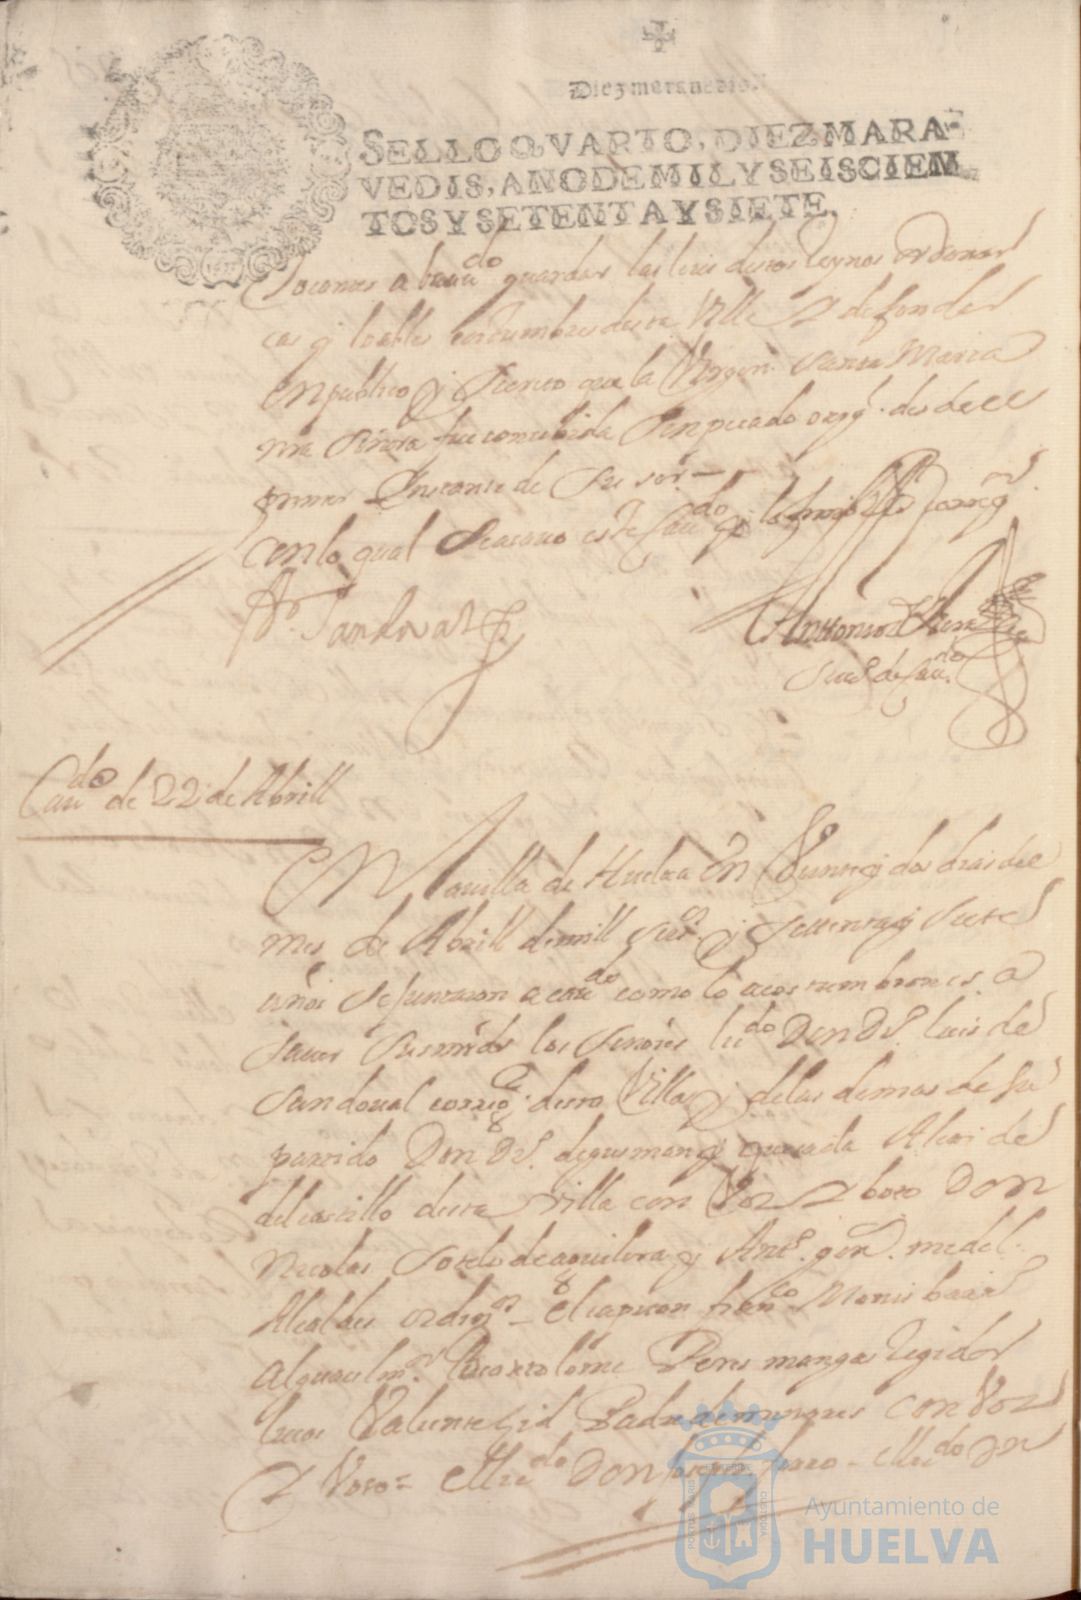 Diez maravedis.
SELLO QVARTO, DIEZ MARA-
VEDIS, AÑO DE MIL Y SEISCIEN
TOS Y SETENTA Y SIETE.
guardar las leies destos Reynos ordenan
cas y loables costumbres desta Villa Y defender
en publico y secreto que la Virgen Santa Maria
nra Señora fue concebida sin pecado orig.l desde el
primer Instante de su ser —
Con lo qual se acavo este Cau.do y lo firmo el S.r Correg.or
Sandoval
Antonio
de Cau.do
Cau.do de 22 de Abrill
En la villa de Huelva en Veinte y dos dias del
mes de Abrill de mill seis.os y settenta y siete
años se juntaron a cau.do como lo acostumbran es a
saver sus mrds los señores liz.do Don D.o luis de
Sandoual correg.or desta Villa y de las demas de su
partido Don D.o de gusman y quesada Alcai de
del castillo desta villa con Voz Y boto Don
Nicolas Sotelo de aguilera y Ant.o
Alcaldes ordin.os – el capitan fran.co
Alguacil m.or Bartolome Peres manga Regidor
Valiente Padre de menores con Voz
Y Voto = el liz.do Don Joseph – el liz.do Don
PORTUS MARIS
CUSTODIA
Ayuntamiento de
HUELVA